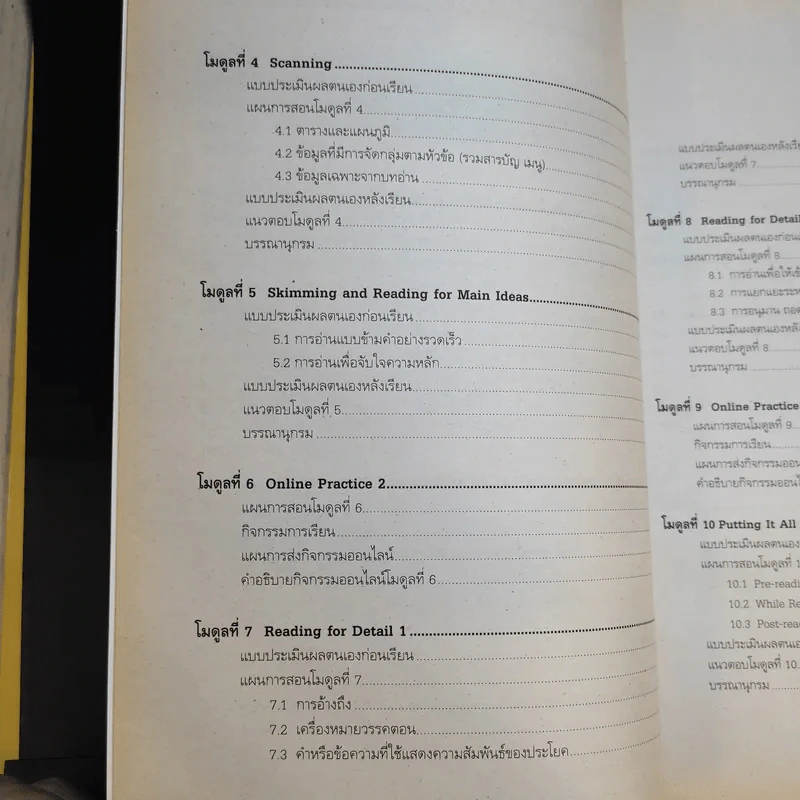 โมดูลที่ 4 Scanning
แบบประเมินผลตนเองก่อนเรียน
แผนการสอนโมดูลที่ 4
4.1 ตารางและแผนภูมิ
4.2 ข้อมูลที่มีการจัดกลุ่มตามหัวข้อ (รวมสารบัญ เมนู)
4.3 ข้อมูลเฉพาะจากบทอ่าน
แบบประเมินผลตนเองหลังเรียน
แนวตอบโมดูลที่ 4
บรรณานุกรม
โมดูลที่ 5 Skimming and Reading for Main Ideas
แบบประเมินผลตนเองก่อนเรียน
5.1 การอ่านแบบข้ามคำอย่างรวดเร็ว
5.2 การอ่านเพื่อจับใจความหลัก
แบบประเมินผลตนเองหลังเรียน
แนวตอบโมดูลที่ 5
บรรณานุกรม
โมดูลที่ 6 Online Practice 2
แผนการสอนโมดูลที่ 6
กิจกรรมการเรียน
แผนการส่งกิจกรรมออนไลน์
คำอธิบายกิจกรรมออนไลน์โมดูลที่ 6
โมดูลที่ 7 Reading for Detail 1
แบบประเมินผลตนเองก่อนเรียน
แผนการสอนโมดูลที่ 7
7.1 การอ้างถึง
7.2 เครื่องหมายวรรคตอน
7.3 คำหรือข้อความที่ใช้แสดงความสัมพันธ์ของประโยค
แบบประเมินผลตนเองหลังเรีย
แนวตอบโมดูลที่ 7
บรรณานุกรม
โมดูลที่ 8 Reading for Detail
แบบประเมินผลตนเองก่อน
แผนการสอนโมดูลที่ 8
8.1 การอ่านเพื่อให้เข้
8.2 การแยกแยะระห
8.3 การอนุมาน ถอด
แบบประเมินผลตนเองหลัง
แนวตอบโมดูลที่ 8
บรรณานุกรม
โมดูลที่ 9 Online Practice
แผนการสอนโมดูลที่ 9
กิจกรรมการเรียน
แผนการส่งกิจกรรมออนไล
คำอธิบายกิจกรรมออนไล
โมดูลที่ 10 Putting It All
แบบประเมินผลตนเอง
แผนการสอนโมดูลที่ 1
10.1 Pre-readi
10.2 While Re
10.3 Post-rea
แบบประเมินผลตนเอ
แนวตอบโมดูลที่ 10
บรรณานุกรม